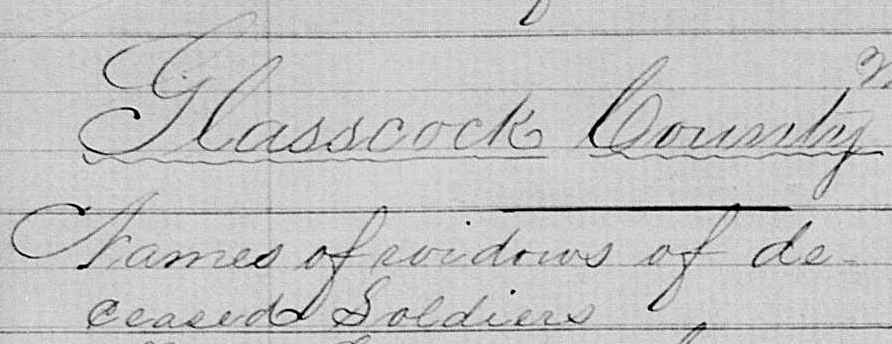 Glasscock County
Names of widows of de-
ceased Soldiers